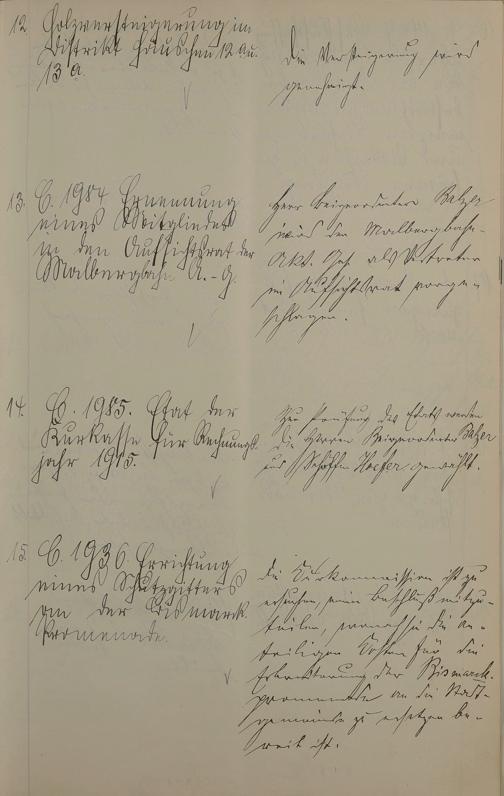 12. Holzversteigerung im
Distrikt Häuschen 12 Au.
13 a.
Die Versteigerung wird
genehmigt.
13. C. 1984 Ernennung
eines Mitgliedes
in den Aufsichtsrat der
Malbergbahn A.-G.
Herr Beigeordneter Balzer
wird der Malbergbahn-
Akt. Ges. als Vertreter
im Aufsichtsrat vorge-
schlagen.
14. C. 1985. Etat der
Kurkasse für Rechnungs-
jahr 1915.
Zur Prüfung des Etats werden
die Herren Beigeordneter Balzer
und Schöffe Hoefer gewählt.
15. C. 1936. Errichtung
eines Schutzgitters
an der Bismarck-
Promenade.
Die Kurkommission ist zu
ersuchen, einen Beschluß mitzu-
teilen, wonach sie die an-
teiligen Kosten für die
der Bismarck-
promenade an die Stadt-
gemeinde zu ersetzen be-
reit ist.